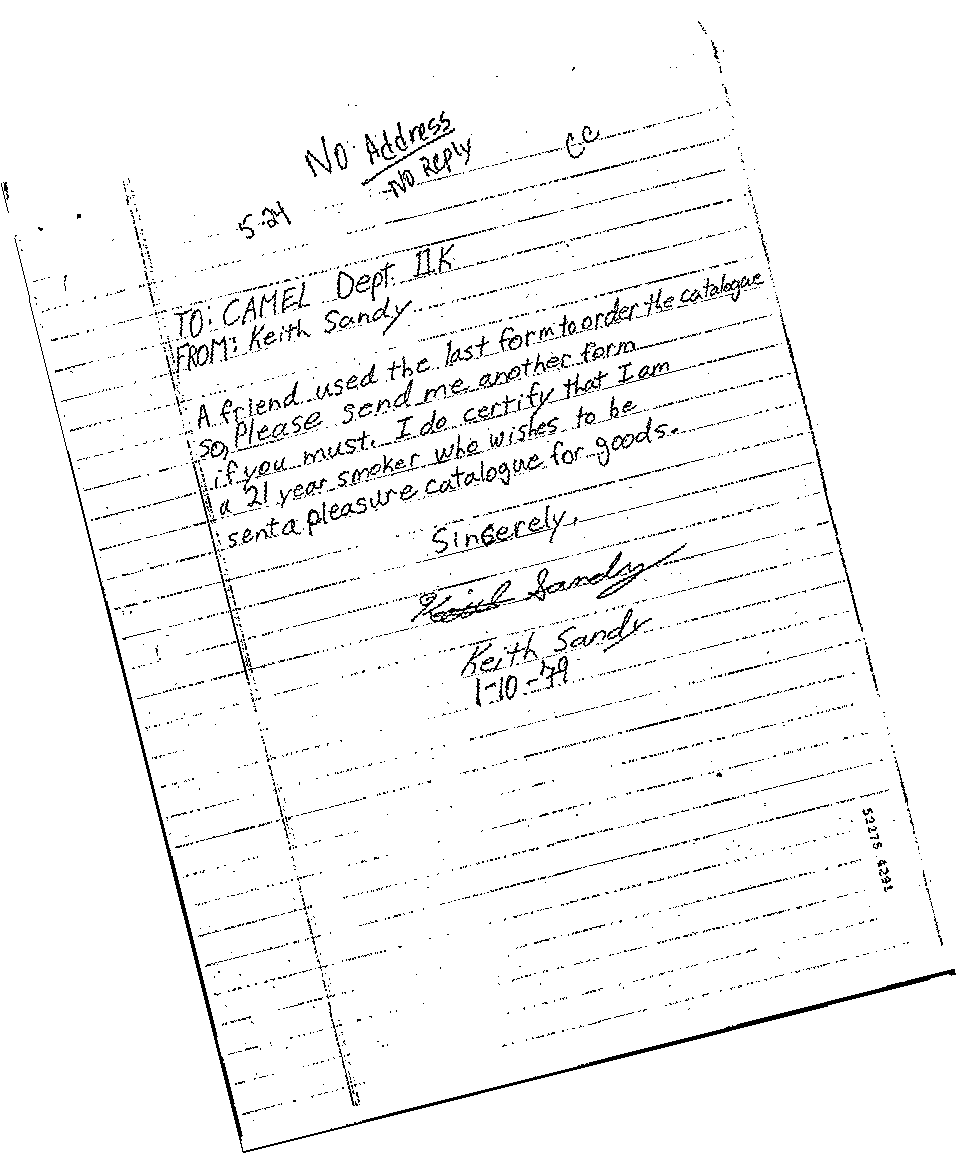 No Address
No Reply
CC
5-24
TO: CAMEL Dept. IIK
FROM: Keith Sandy
A friend used the last form to order the catalogue
so, Please send me another form
if you must. I do certify that I am
a 21 year smoker who wishes to be
sent a pleasure catalogue for goods.
Sincerely,
Keith Sandy
Keith Sandy
1-10-79
52275 4291